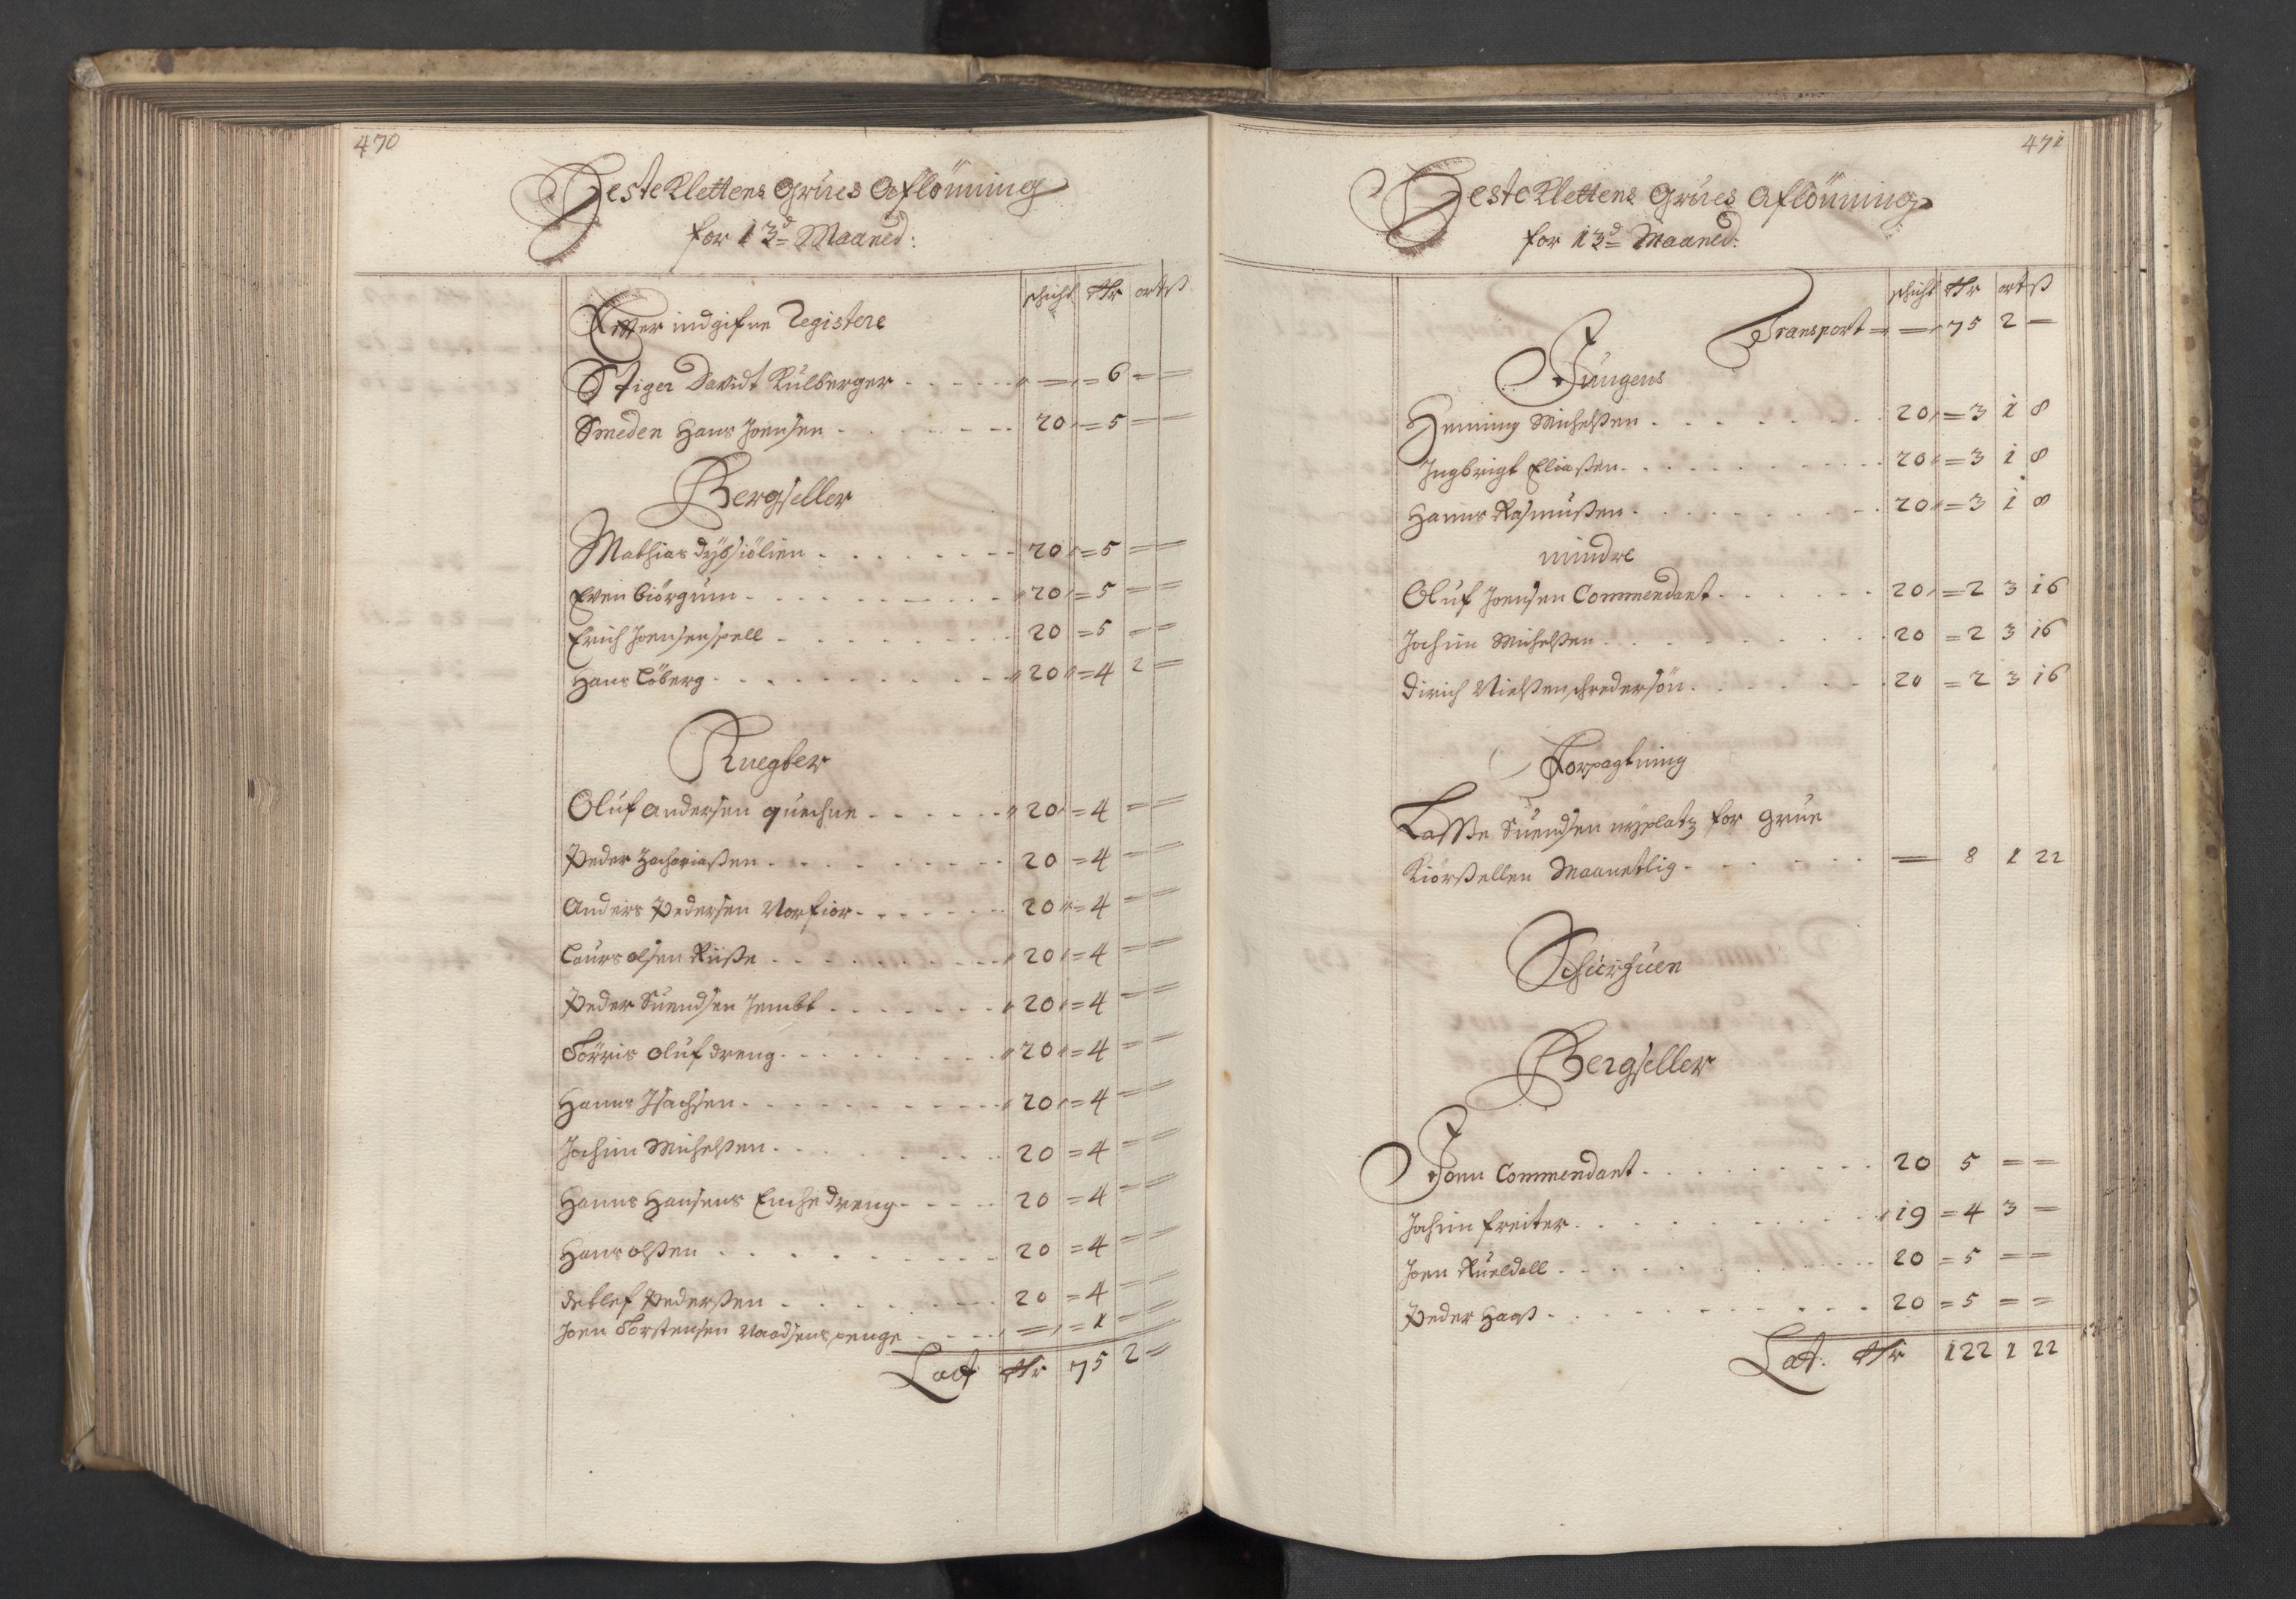 470
Hesteklettens Grues Aflönning
for 13d Maaned:
schicht Rdr ort ß
Efter indgifne Registere
Stiger Davidt Kulberger - - - - - " — " = 6 = =
Smeden Hans Joensen - - - - - - 20 " = 5 = =
Bergseller
Mathias Dybsiölien - - - - - - 20 " = 5 = =
Even Giörgum - - - - - - " 20 " = 5 = =
Erich Joensen spell - - - - - - 20 = 5 = =
Hans Löberg - - - - - - " 20 " = 4 2 =
Knegter
Oluf Andersen quechne - - - - - - " 20 " = 4 = =
Peder Zachariaßen - - - - - - 20 = 4 = =
Anders Pedersen Norfior - - - - - - 20 " = 4 = =
Lours olsen Riiße - - - - - - " 20 " = 4 = =
Peder Suendsen Jembt - - - - - - " 20 " = 4 = =
Törris Oluf dreng - - - - - - " 20 " = 4 = =
Hanns Isachsen - - - - - - " 20 " = 4 = =
Jochim Michelßen - - - - - - 20 = 4 = =
Hanns Hansens Enche dreng - - - - 20 = 4 = =
Hans olßen - - - - - - 20 = 4 = =
Detlef Pederßen - - - - - - 20 = 4 = =
Joen Torstensen Naadsens penge - - - - " — " = 1 = =
Lat Rdr 75 2 =
471
Hesteklettens Grues Aflönning
for 13d Maaned:
schicht Rdr ort ß
Transport = — " 75 2 —
Jungens
Henning Michelßen - - - - - - 20 " = 3 1 8
Ingbrigt Eliaßen - - - - - - 20 " = 3 1 8
Hanns Rasmußen - - - - - - 20 " = 3 1 8
mindre
Oluf Joensen Commendant - - - - - - 20 " = 2 3 16
Jochim Michelßen - - - - - - 20 = 2 3 16
Dirich Nielßen schredersön - - - - - - 20 = 2 3 16
Forpagtning
Laße Suendsen nyplatz for grue
Kiörßellen Maanetlig - - - - - - — 8 1 22
Schürhuen
Bergseller
Joen Commendant - - - - - - 20 5 = =
Jochim freiter - - - - - - " 19 = 4 3 —
Joen Rueldall - - - - - - 20 = 5 = =
Peder Hagt - - - - - - 20 = 5 = =
Lat. Rdr 122 1 22